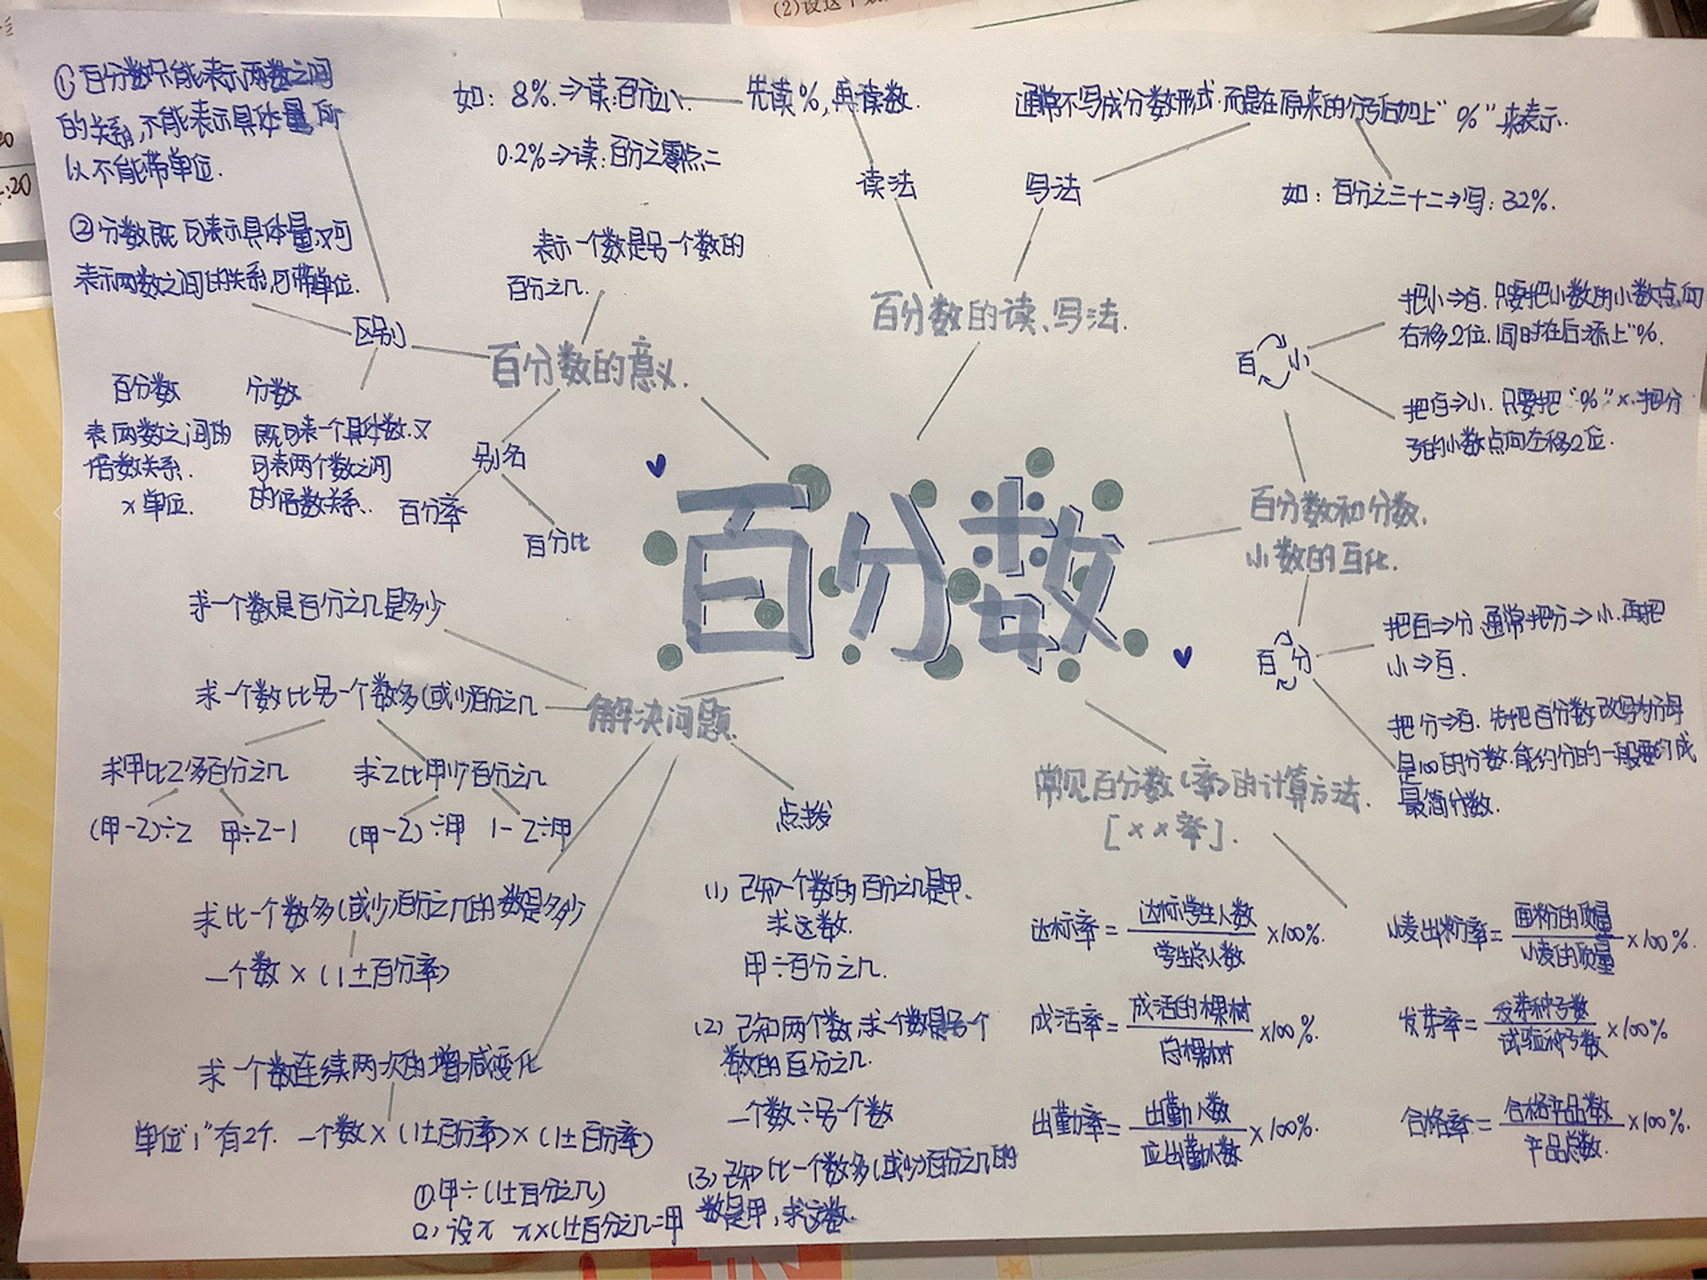 (2)设这个数
:20
①百分数只能表示两数之间
的关系,不能表示具体量,所
以不能带单位.
②分数既可表示具体量,又可
表示两数之间的关系,可带单位.
区别
百分数
表两数之间的
倍数关系.
×单位.
分数
既可表一个具体数,又
可表两个数之间
的倍数关系.
如: 8%.⇒读:百分之八
先读%,再读数.
0.2%⇒读:百分之零点二
读法
通常不写成分数形式,而是在原来的分子后加上"%"来表示.
写法
如:百分之三十二⇒写:32%.
表示一个数是另一个数的
百分之几.
百分数的意义.
别名
百分率
百分比
百分数的读、写法.
百分数
把小⇒百.只要把小数的小数点向
右移2位.同时在后添上"%.
百 小
把百⇒小.只要把"%"×.把分
子的小数点向左移2位.
百分数和分数,
小数的互化.
百 分
把百⇒分.通常把分⇒小.再把
小⇒百.
把分⇒百.先把百分数改写为分母
是100的分数.能约分的一般要约成
最简分数.
解决问题.
求一个数是百分之几是多少
求一个数比另一个数多(或少)百分之几
求甲比乙多百分之几
求乙比甲少百分之几
(甲-乙)÷乙
甲÷乙-1
(甲-乙)÷甲
1-乙÷甲
求比一个数多(或少)百分之几的数是多少
一个数×(1±百分率)
求一个数连续两次的增减变化
单位"1"有2个. 一个数×(1±百分率)×(1±百分率)
点拨
(1) 已知一个数的百分之几是甲.
求这数.
甲÷百分之几.
(2) 已知两个数,求一个数是另一个
数的百分之几.
一个数÷另一个数
(3) 已知比一个数多(或少)百分之几的
数是甲,求这数.
①甲÷(1±百分之几)
2)设x x×(1±百分之几=甲
常见百分数(率)的计算方法.
[××率].
达标率=达标学生人数/学生总人数×100%.
小麦出粉率=面粉的质量/小麦的质量×100%.
成活率=成活的棵树/总棵树×100%.
发芽率=发芽种子数/试验种子数×100%
出勤率=出勤人数/应出勤人数×100%.
合格率=合格产品数/产品总数×100%.